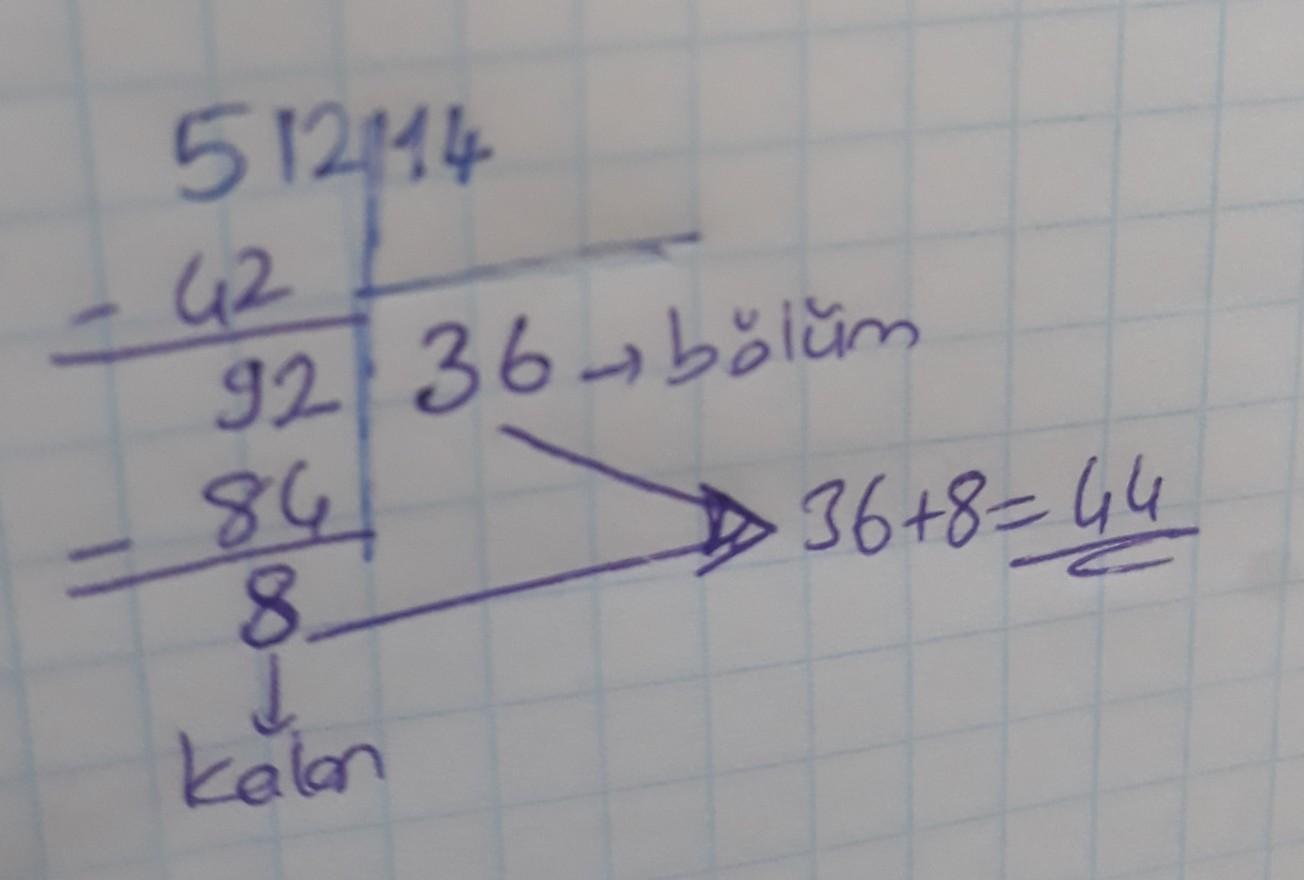 512 14
- 42
92 36 → bölüm
- 84 36+8=44
8
↓
kalan